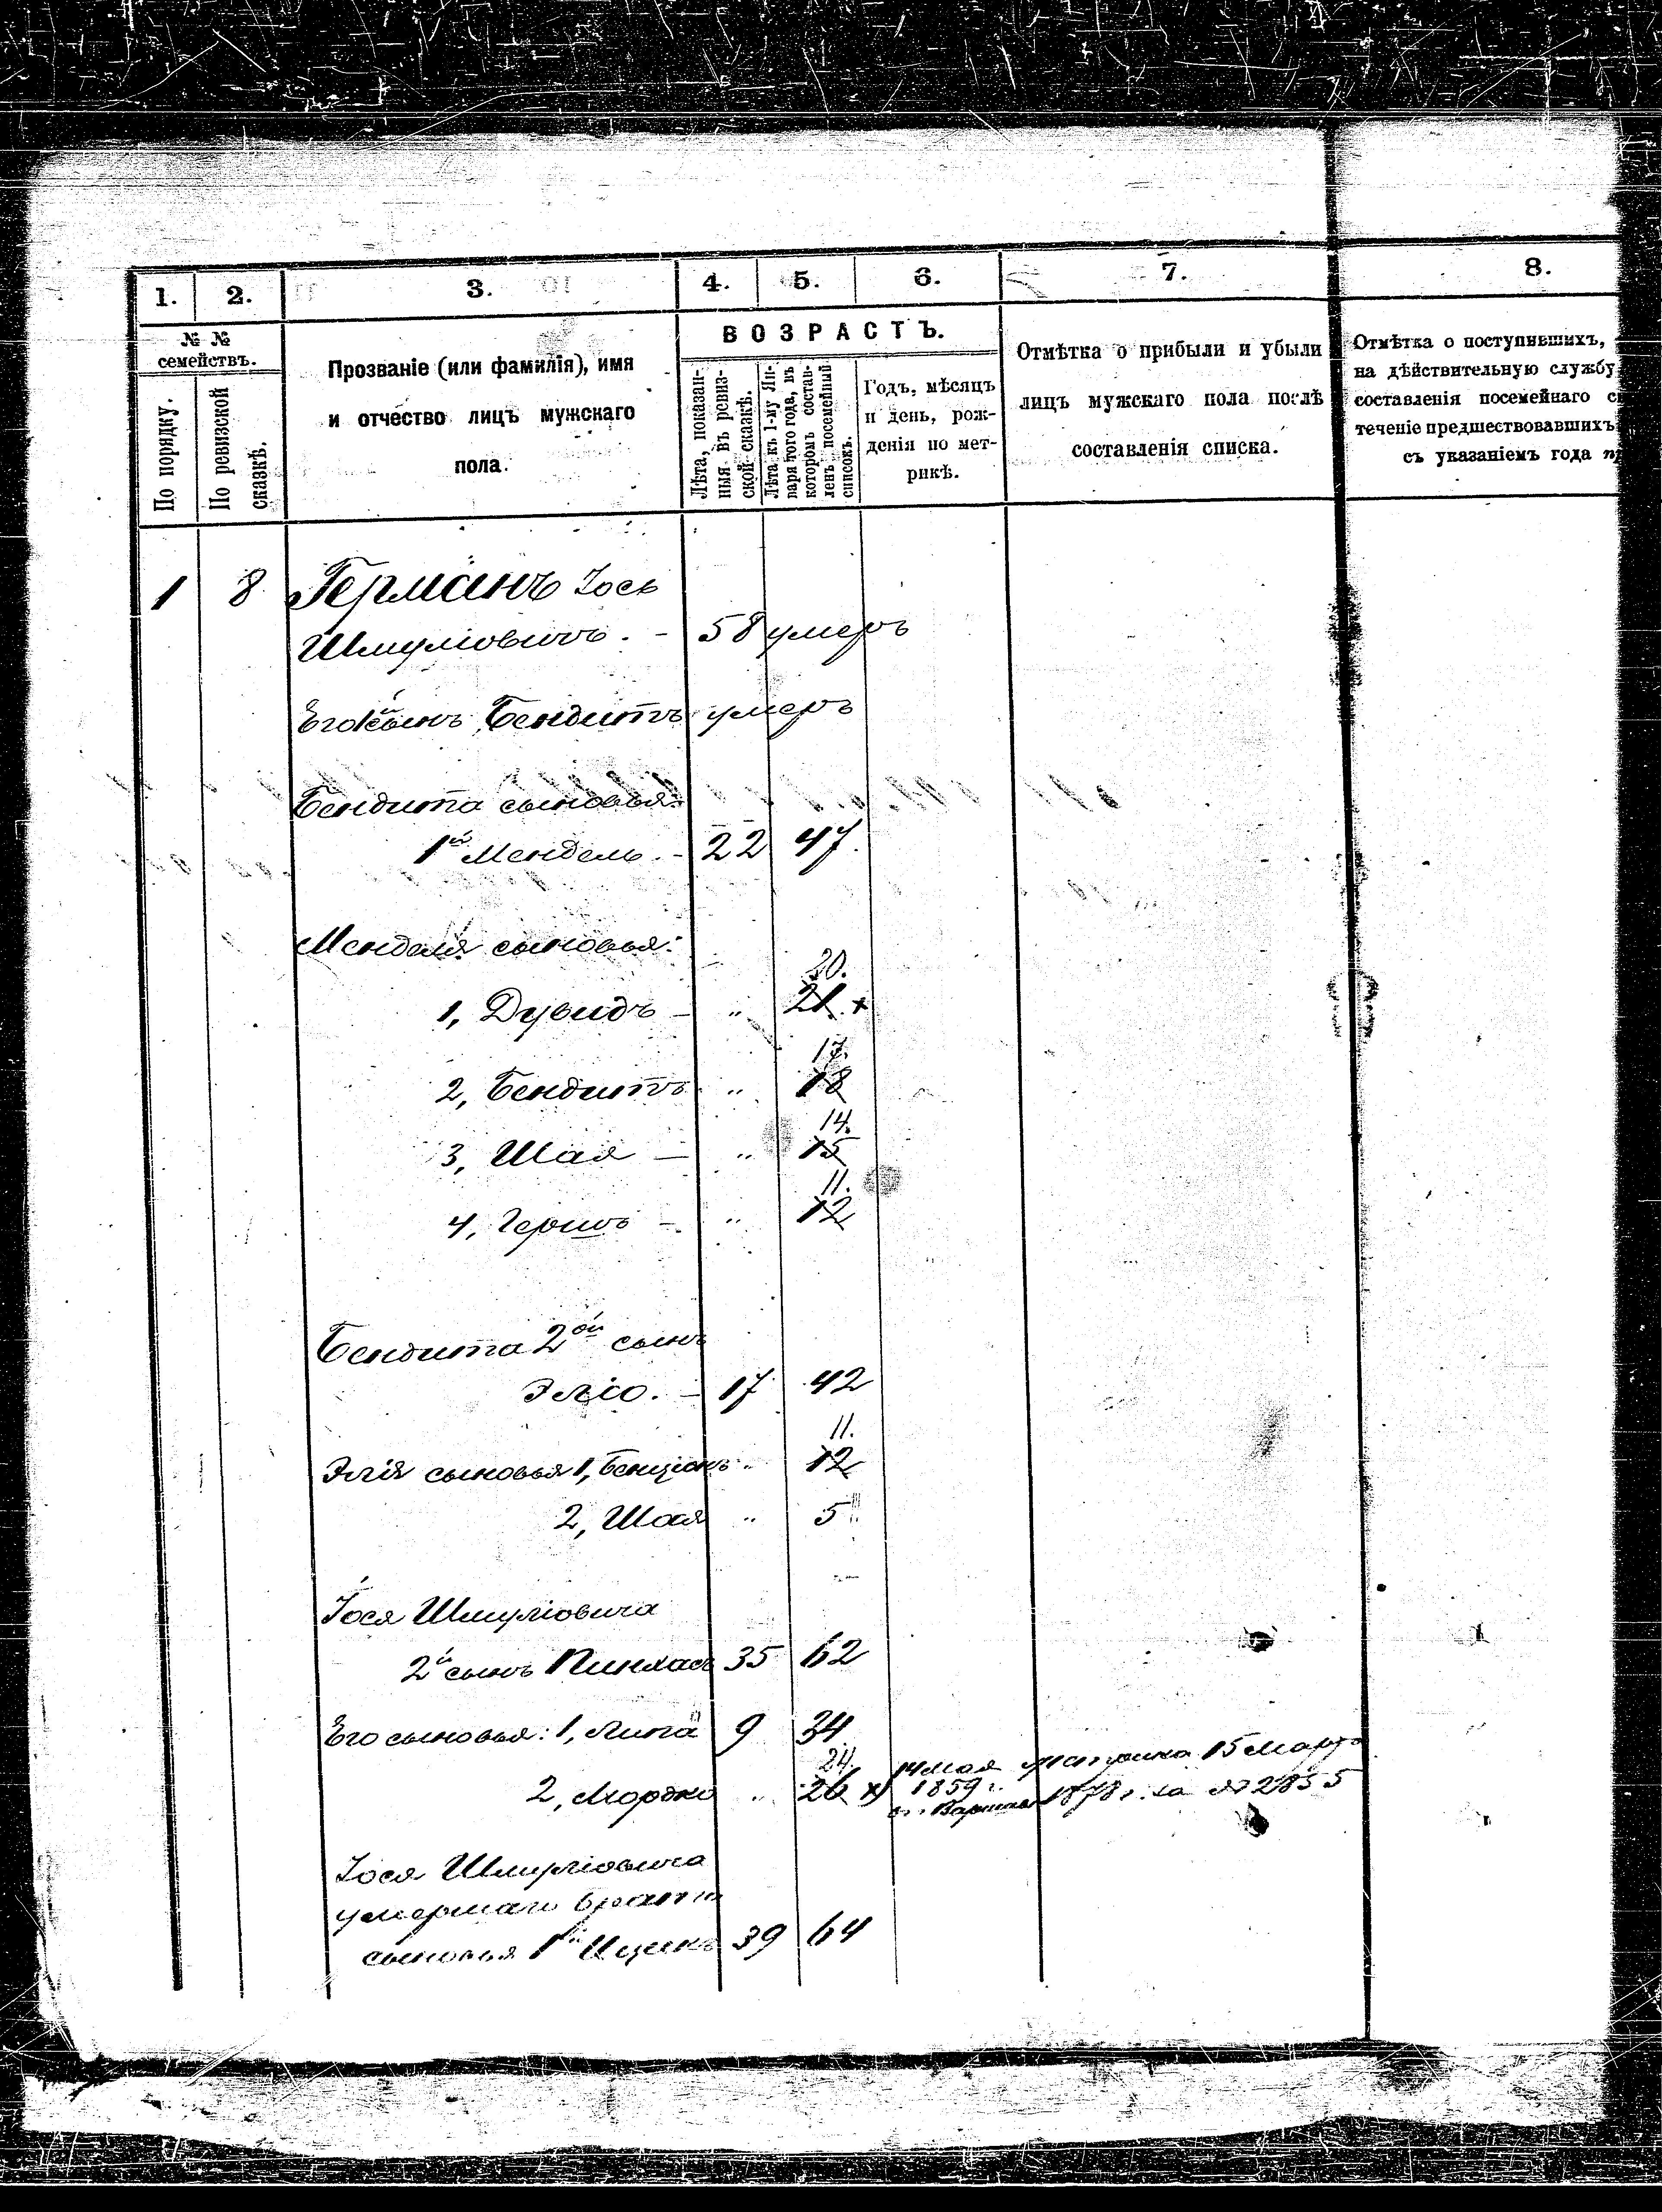 1. 2. 3. 4. 5. 6. 7. 8.
№ №
семействъ.
По порядку.
По ревизской
сказкѣ.
Прозваніе (или фамилія), имя
и отчество лицъ мужскаго
пола.
ВОЗРАСТЪ.
Лѣта, показан-
ныя въ ревиз-
ской сказкѣ.
Лѣта къ 1-му Ян-
варя того года, въ
которомъ состав-
ленъ посемейный
списокъ.
Годъ, мѣсяцъ
и день, рож-
денія по мет-
рикѣ.
Отмѣтка о прибыли и убыли
лицъ мужскаго пола послѣ
составленія списка.
Отмѣтка о поступившихъ,
на дѣйствительную службу
составленія посемейнаго
теченіе предшествовавшихъ
съ указаніемъ года
1 8 Германъ Іось
Шмуліовичъ. - 58 умеръ
Его сынъ Бендитъ умеръ
Бендита сыновья:
1й Мендель. - 22 47.
Менделя сыновья:
20.
1, Дувидъ - " 21 x
17.
2, Бендитъ " 18
14.
3, Шая - " 15
11.
4, Гершъ - " 12
Бендита 2ой сынъ
Эліо. - 17 42
11.
Элія сыновья 1, Бенціонъ " 12
2, Шая " 5
Іося Шмуліовича
2й сынъ Пинхасъ 35 62
Его сыновья: 1, Липа 9 34
24.
14 мая метрика 15 Марта
2, Мордко " 26 x) 1859 г. 1878 г. за № 2855
въ г. Варшавѣ
Іося Шмуліовича
умершаго брата
сыновья 1й Ицикъ 39 64